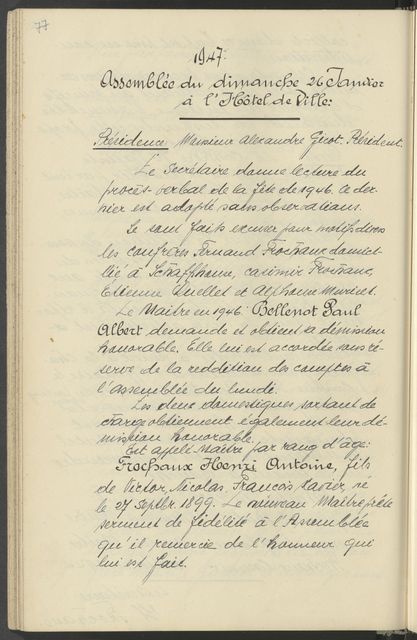 77
1947:
Assemblée du dimanche 26 Janvier
à l'Hôtel de Ville:
Présidence: Monsieur Alexandre Gicot. Président.
Le Secrétaire donne lecture du
procès-verbal de la fête de 1946. le der-
nier est adopté sans observations.
Se sont faits excuser pour motifs divers
les confrères Fernand Frochaux domici-
lié à Schaffhouse, Casimir Frochaux,
Etienne Quellet et Alphonse Muriset.
Le Maître en 1946 Bellenot Paul
Albert demande et obtient sa démission
honorable. Elle lui est accordée sous ré-
serve de la reddition des comptes à
l'assemblée du lundi.
Les deux domestiques sortant de
charge obtiennent également leur dé-
mission honorable.
Est appelé Maître par rang d'âge:
Frochaux Henri Antoine, fils
de Victor, Nicolas, François Xavier, né
le 27 Septbr. 1899. Le nouveau Maître prête
serment de fidélité à l'Assemblée
qu'il remercie de l'honneur qui
lui est fait.